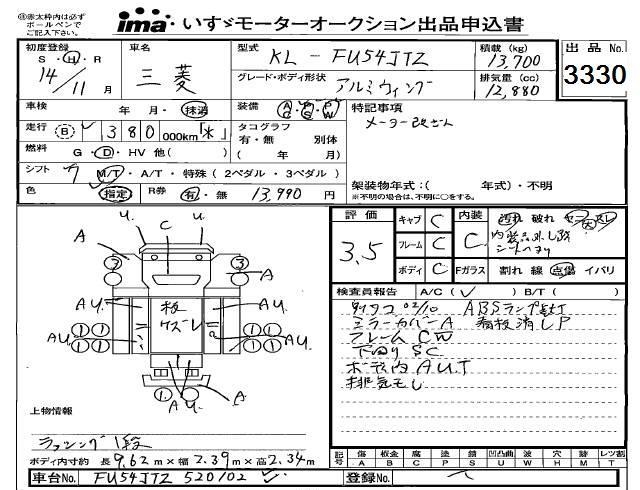 ※赤太枠内は必ず
ボールペンで
ご記入下さい。
ima いすゞモーターオークション出品申込書
初度登録
S・H・R
14/11月
車名
三菱
型式
KL-FU54JTZ
グレード・ボディ形状
アルミウィング
積載(kg)
13,700
排気量(cc)
12,880
出品No.
3330
車検 年 月・抹消
装備 AC・PS・PW
特記事項
メーター改ざん
走行 B 380 000km「*」
タコグラフ
有・無 別体
( 年 月)
燃料 G・D・HV 他( )
シフト 7 M/T・A/T・特殊(2ペダル・3ペダル)
架装物年式:( 年式)・不明
※不明の場合は、不明に○をする。
色 指定 R券 有・無 13,990円
評価
3.5
キャブ C
フレーム C
ボディ C
内装
C
汚れ 破れ コゲ スレ
内装品外し跡
シートへたり
Fガラス 割れ 線 点傷 イバリ
検査員報告 A/C( ✓ ) B/T( )
タイヤコ 02/10 ABSランプ点灯
ミラーカバーA 看板消しP
フレーム CW
下回り SC
ボディ内 A U.T
排気モレ
u. u.
A C
3 3 A
AU. 板 AU.
ケズレ
AU. AU.
1 1 1 1
1 1 1 1
1 1
A u. A
上物情報
ラッシング1段
ボディ内寸約 長9.62m×幅2.39m×高2.34m
記号 傷 A 板金 B 腐 C 塗 P 錆 S 凹凸曲 U 波 W 穴 H 跡 M レツ割 T
車台No. FU54JTZ 520102 ✓
登録No.